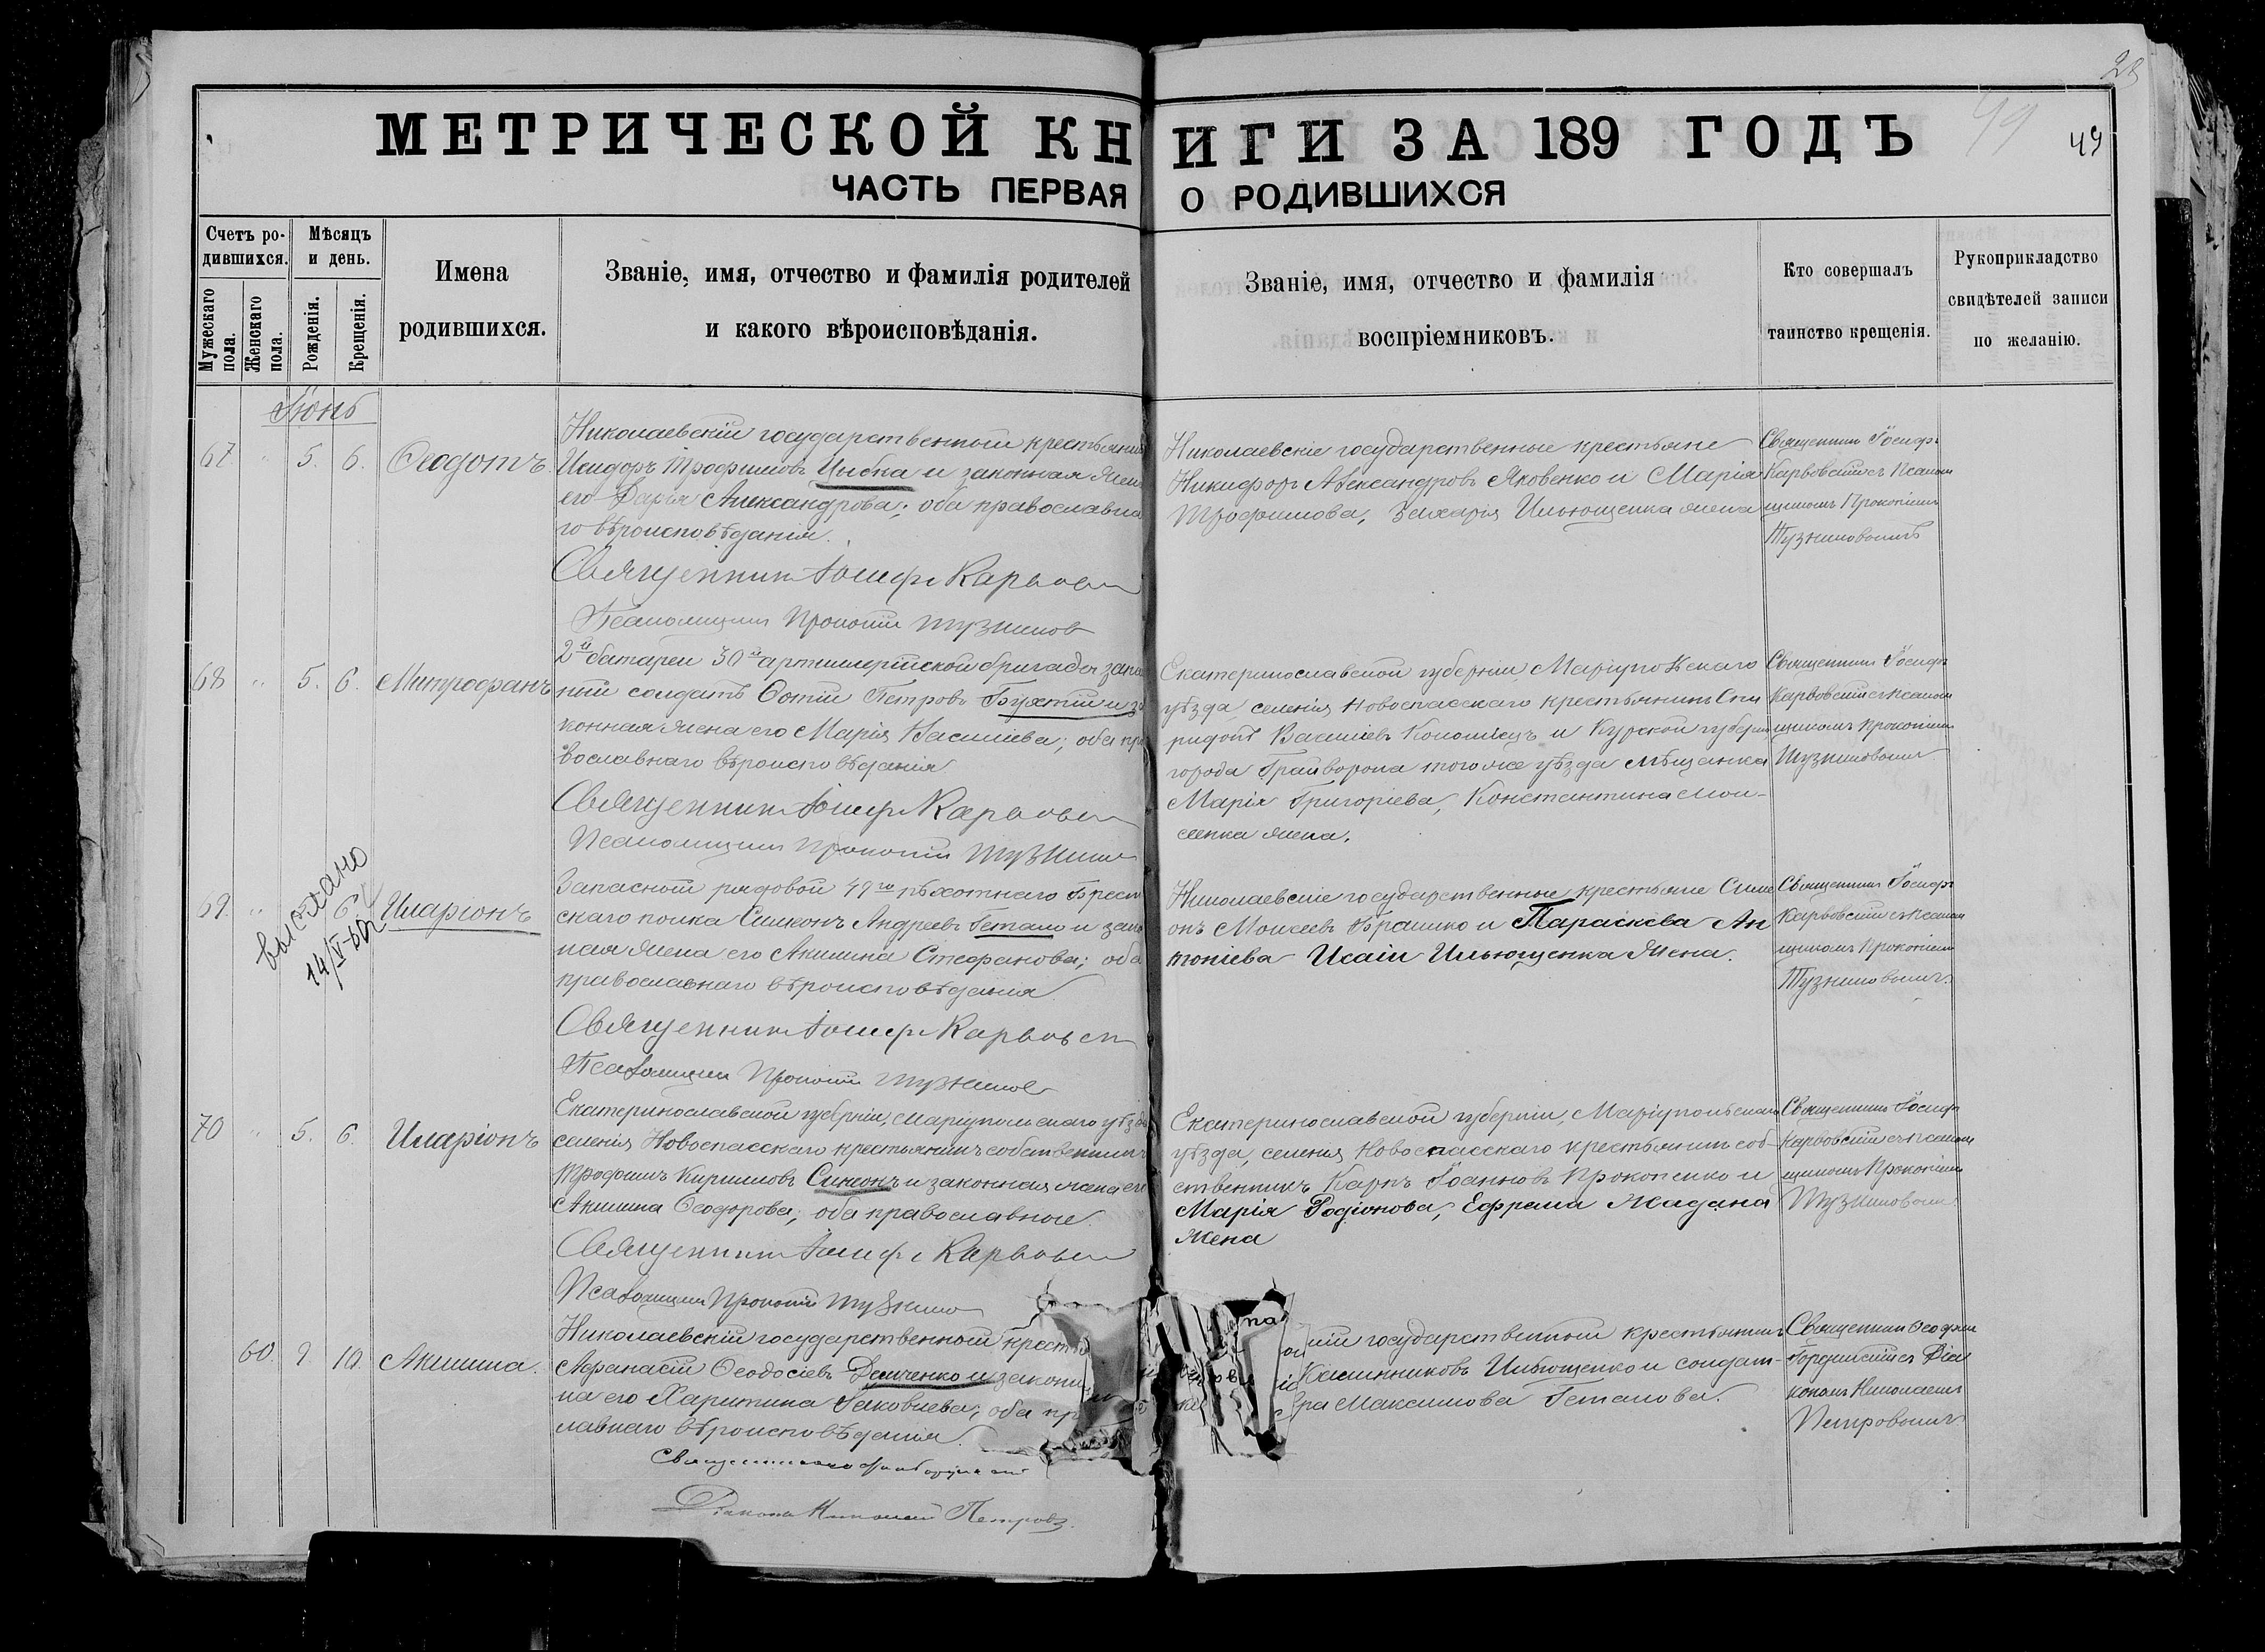 28
49
49
МЕТРИЧЕСКОЙ КНИГИ ЗА 189 ГОДЪ
ЧАСТЬ ПЕРВАЯ О РОДИВШИХСЯ
Счетъ ро-
дившихся.
Мужескаго пола.
Женскаго пола.
Мѣсяцъ
и день.
Рожденія.
Крещенія.
Имена
родившихся.
Званіе, имя, отчество и фамилія родителей
и какого вѣроисповѣданія.
Званіе, имя, отчество и фамилія
воспріемниковъ.
Кто совершалъ
таинство крещенія.
Рукоприкладство
свидѣтелей записи
по желанію.
Іюнь
67. " 5. 6. Ѳеодотъ.
Николаевскій государственный крестьянин
Исидоръ Трофимовъ Цыбка и законная жен
его Дарья Александрова; оба православна
го вѣроисповѣданія.
Священникъ Іосифъ Карвовск
Псаломщикъ Прокопій Тузниковъ
Николаевскіе государственные крестьяне
Никифоръ Александровъ Яковенко и Марія
Трофимова, Захарія Ильющенка жена
Священникъ Іосифъ
Карвовскій съ Псалом
щикомъ Прокопіемъ
Тузниковымъ
68 " 5. 6. Митрофанъ
2й батареи 30й артиллерійской бригады запа
ный солдатъ Фотій Петровъ Буятій и за
конная жена его Марія Василіева; оба пра
вославнаго вѣроисповѣданія
Священникъ Іосифъ Карвовск
Псаломщикъ Прокопій Тузников
Екатеринославской губерніи, Маріупольскаго
уѣзда, селенія Новоспасскаго крестьянинъ Спи
ридонъ Василіевъ Коломіецъ и Курской губерніи
города Грайворона того же уѣзда мѣщанка
Марія Григоріева, Константина Мои-
сеенка жена.
Священникъ Іосифъ
Карвовскій съ Псалом
щикомъ Прокопіемъ
Тузниковымъ
выслано
14/V-60г
69. " 6 Иларіонъ
Запасной рядовой 49го пѣхотнаго Брест
скаго полка Симеонъ Андреевъ Гетало и зако
ная жена его Акилина Стефанова; оба
православнаго вѣроисповѣданія
Священникъ Іосифъ Карвовск
Псаломщикъ Прокопій Тузников
Николаевскіе государственные крестьяне Симе
онъ Моисеевъ Брашко и Параскева Ан
тоніева Исаіи Ильющенка жена.
Священникъ Іосифъ
Карвовскій съ Псалом
щикомъ Прокопіемъ
Тузниковымъ.
70 " 5. 6. Иларіонъ
Екатеринославской губерніи, Маріупольскаго уѣзда
селенія Новоспасскаго крестьянинъ собственникъ
Трофимъ Кириловъ Симонъ и законная жена его
Акилина Ѳеодорова; оба православные.
Священникъ Іосифъ Карвовск
Псаломщикъ Прокопій Тузнико
Екатеринославской губерніи, Маріупольскаго
уѣзда, селенія Новоспасскаго крестьянинъ соб-
ственникъ Карпъ Іоанновъ Прокопенко и
Марія Родіонова, Ефрема Жадана
жена
Священникъ Іосифъ
Карвовскій съ Псалом
щикомъ Прокопіемъ
Тузниковымъ
60. 9. 10. Акилина.
Николаевскій государственный крест
Афанасій Ѳеодосіевъ Демченко и законн
на его Харитина Яковлева; оба пр
лавнаго вѣроисповѣданія.
Діаконъ Николай Петровъ.
ній государственный крестьянинъ
Калинниковъ Ильющенко и солдат-
ра Максимова Геталова.
Священникъ Ѳеофил
Городискій съ Діа
кономъ Николаемъ
Петровымъ